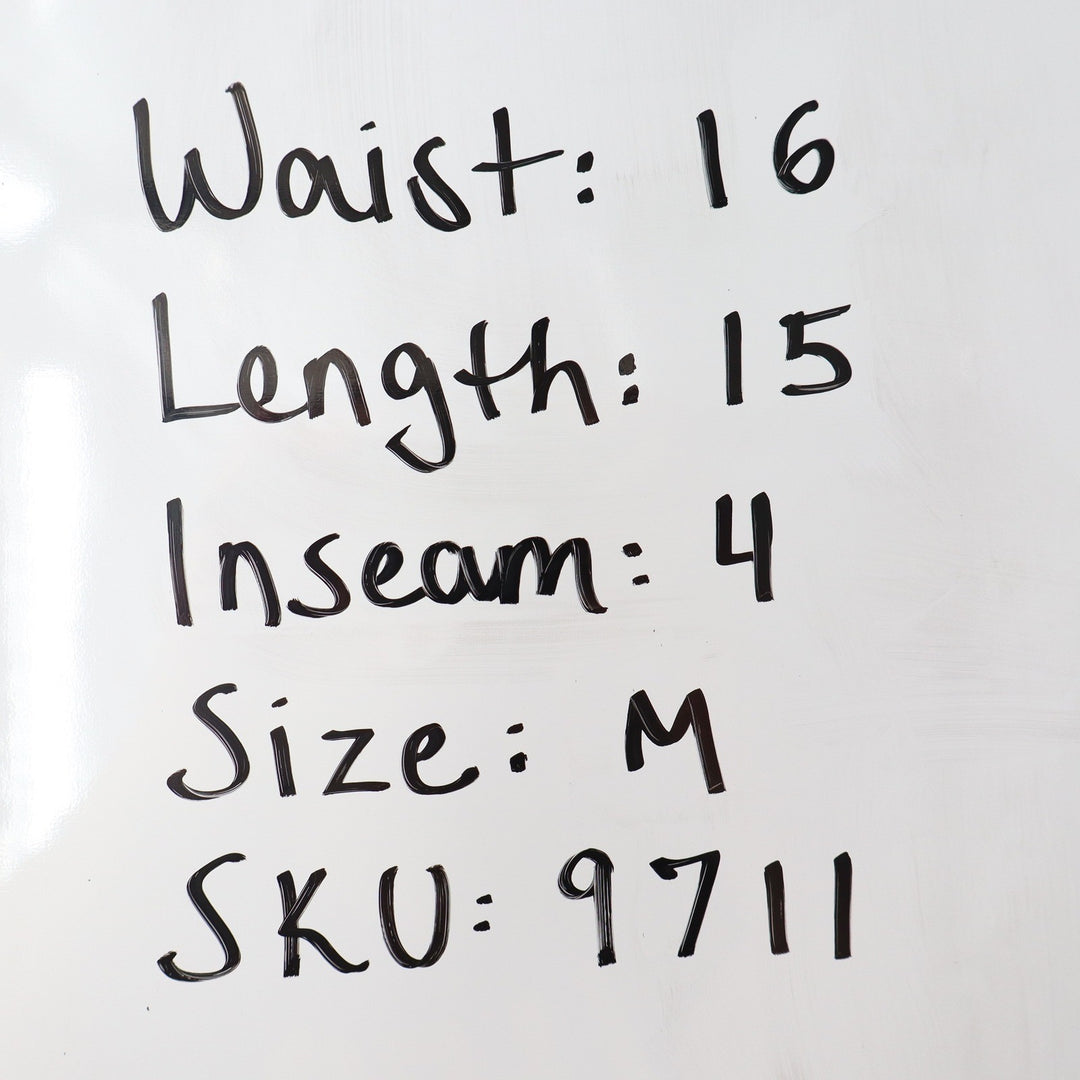 Waist: 16
Length: 15
Inseam: 4
Size: M
SKU: 9711